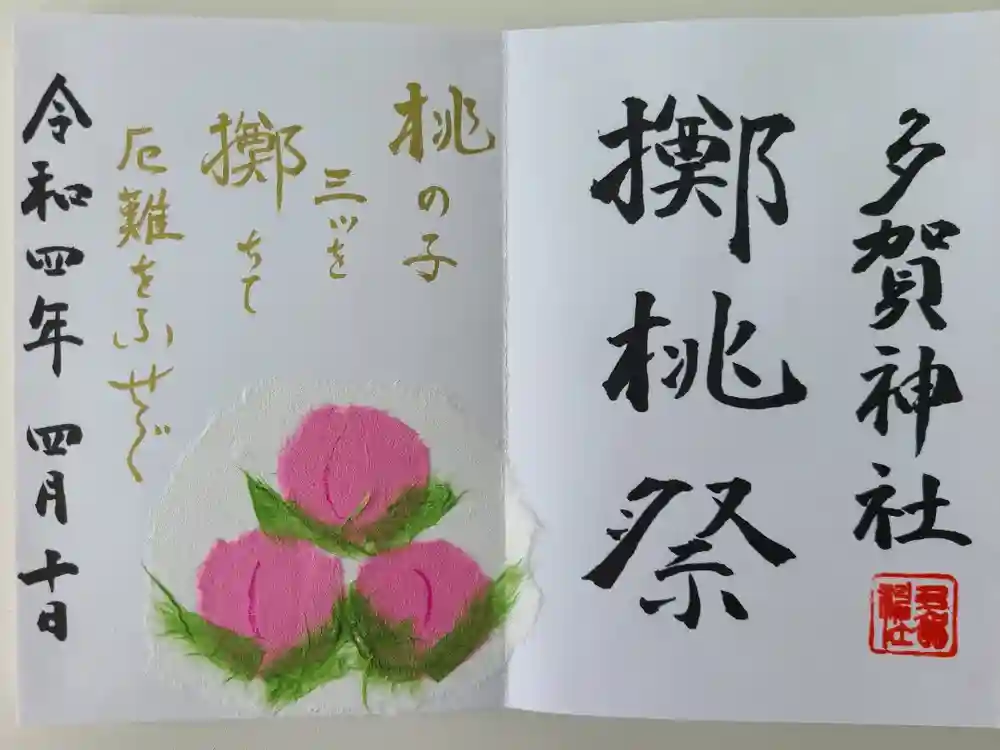 多賀神社
擲桃祭
桃の子
三ッを
擲ちて
厄難をふせぐ
令和四年 四月十日